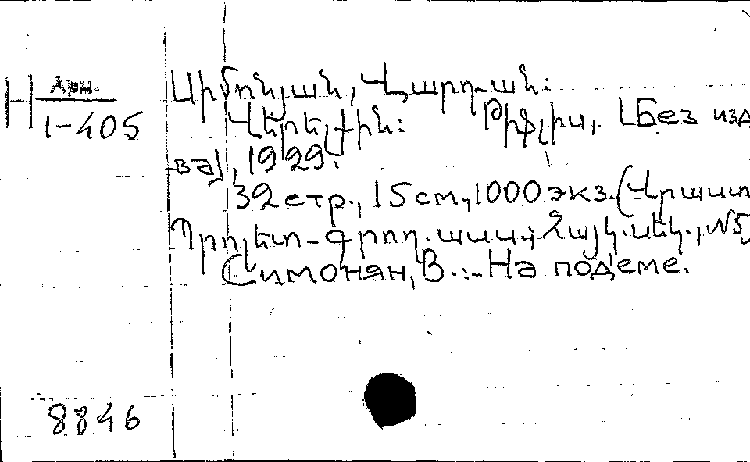 Н Арм. 1-405
Սիմոնյան, Վարդան:
Վերելքին: Թիֆլիս, [Без изд-
ва], 1929.
32 стр., 15 см, 1000 экз. (Վրաստ
Պրոլետ-գրող. ասս., Հայկ. սեկ., №5
Симонян, В. :- На под'еме.
8846